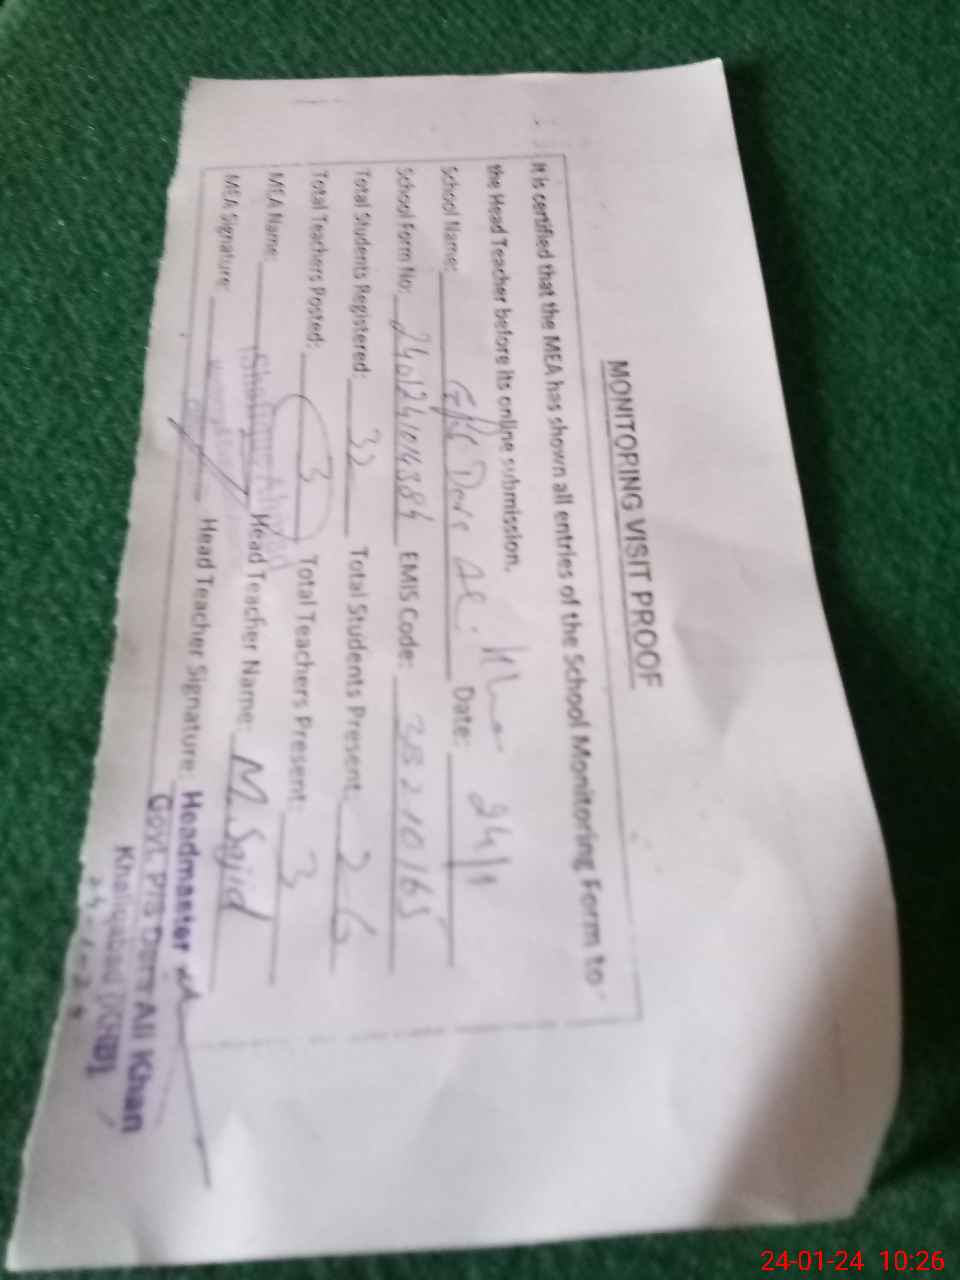 MONITORING VISIT PROOF
It is certified that the MEA has shown all entries of the School Monitoring Form to
the Head Teacher before its online submission.
School Name: GPS Dere Ali Khan Date: 24/1
School Form No: 240124104384 EMIS Code: 38210165
Total Students Registered: 32 Total Students Present: 26
Total Teachers Posted: 3 Total Teachers Present: 3
MEA Name: Head Teacher Name: M. Sajid
MEA Signature: Head Teacher Signature:
Headmaster
Govt. P/S Dere Ali Khan
24-1-24
24-01-24 10:26